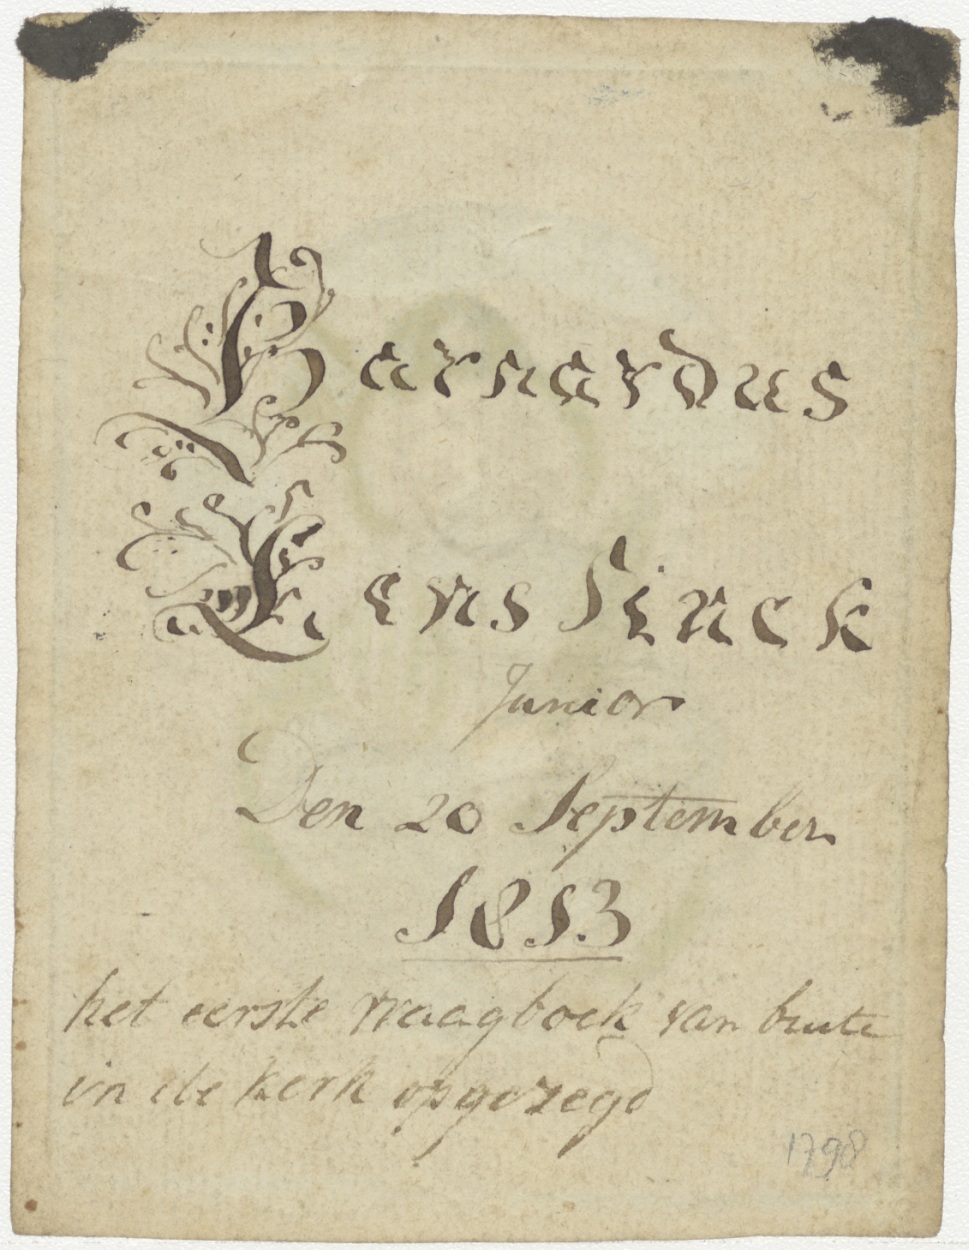 Barnardus
Lenssinck
Junior
Den 20 September
1813
het eerste vraagboek van buite
in de kerk opgezegd
1798